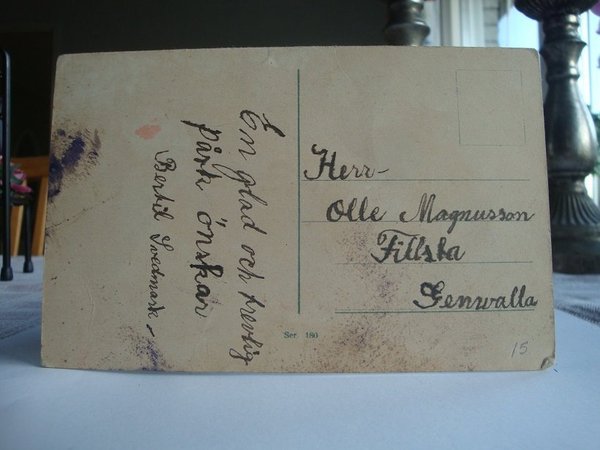 En glad och trevlig
påsk önskar
Bertil Svedmark
Herr-
Olle Magnusson
Fillsta
Genvalla
Ser. 180
15